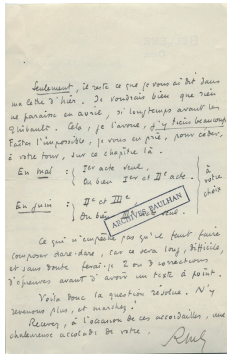 Seulement, il reste ce que je vous ai dit dans
ma lettre d'hier. Je voudrais bien que rien
ne paraisse en avril, si longtemps avant les
Thibault. Cela, je l'avoue, j'y tiens beaucoup
Faites l'impossible, je vous en prie, pour céder,
à votre tour, sur ce chapitre là.
En mai : { Ier acte seul,
Ou bien Ier et IIe acte. } à votre choix
En juin : { IIe et IIIe
Ou bien seul.
ARCHIVES PAULHAN
Ce qui n'empêche pas qu'il faut faire
composer dare-dare, car ce sera long, difficile,
et sans doute ferai-je 2 ou 3 corrections
d'épreuves avant d'avoir un texte à point.
Voilà donc la question résolue. N'y
revenons plus, et marchez !
Recevez, à l'occasion de ces accordailles, une
chaleureuse accolade de votre